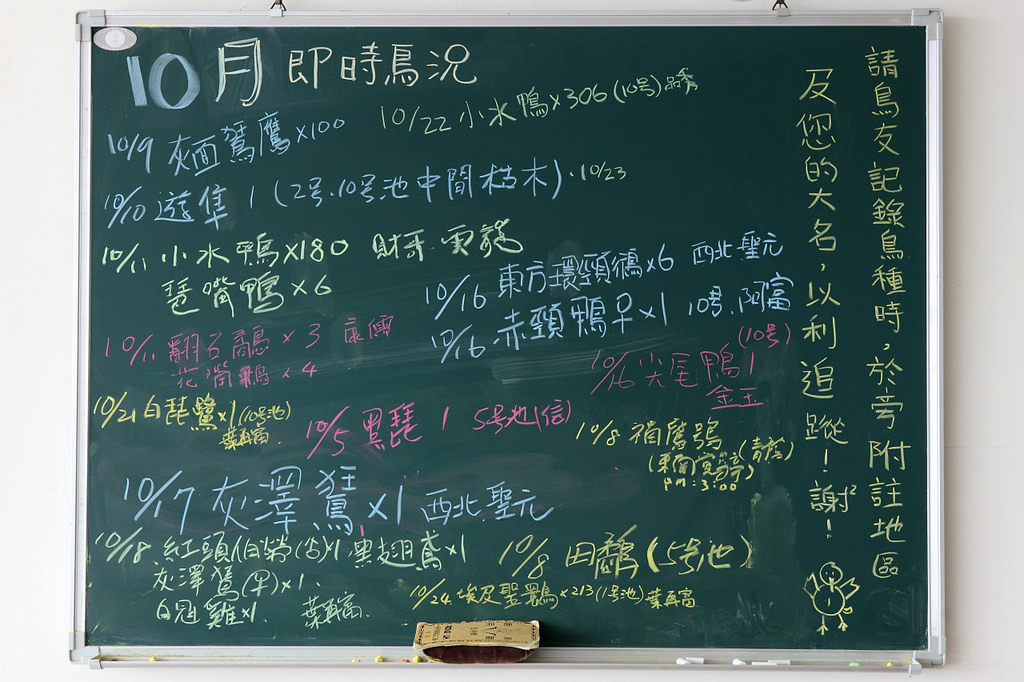 10月 即時鳥況
10/22 小水鴨×306(10号)
10/9 灰面鵟鷹×100
10/10 遊隼 1 (2号.10号池中間枯木)·10/23
10/11 小水鴨×180 財哥
琵嘴鴨×6
10/16 東方環頸鴴×6 西北.聖元
10/16 赤頸鴨♀×1 10号.阿富
10/11 翻石鷸×3
花嘴鴨×4
10/16 尖尾鴨 1 (10号)
金玉
10/21 白琵鷺×1(10号池)
葉再富.
10/5 黑琵 1 5号池(信)
10/8 褐鷹鴞
pm:3:00
10/17 灰澤鵟×1 西北.聖元
10/18 紅頭伯勞(♂)×1 黑翅鳶×1
灰澤鵟(♀)×1.
白冠雞×1 葉再富.
10/8 田鷸(5号池)
10/24.埃及聖䴉×213(1号池)葉再富
請鳥友記錄鳥種時,於旁附註地區
及您的大名,以利追蹤!謝²!